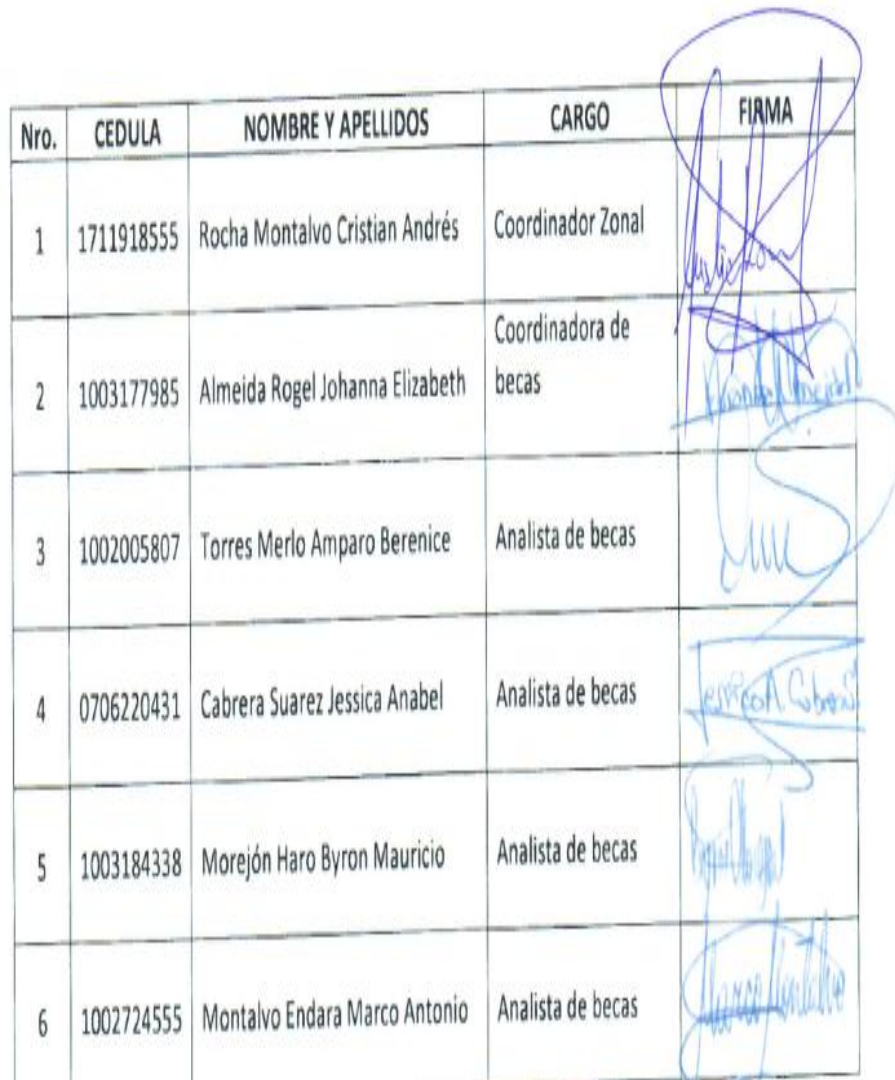 Nro. CEDULA NOMBRE Y APELLIDOS CARGO FIRMA
1 1711918555 Rocha Montalvo Cristian Andrés Coordinador Zonal
2 1003177985 Almeida Rogel Johanna Elizabeth Coordinadora de
becas
3 1002005807 Torres Merlo Amparo Berenice Analista de becas
4 0706220431 Cabrera Suarez Jessica Anabel Analista de becas
5 1003184338 Morejón Haro Byron Mauricio Analista de becas
6 1002724555 Montalvo Endara Marco Antonio Analista de becas Marco Montalvo